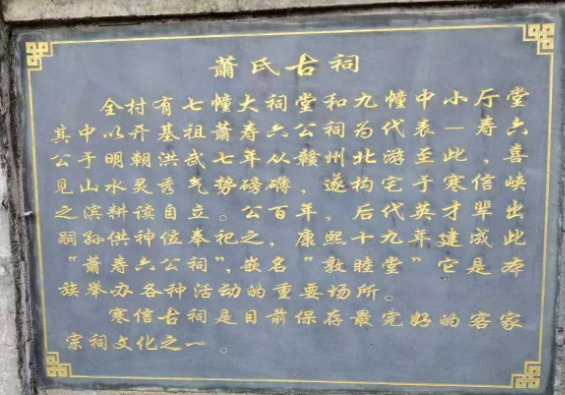 萧氏古祠
全村有七幢大祠堂和九幢中小厅堂
其中以开基祖萧寿六公祠为代表一寿六
公于明朝洪武七年从赣州北游至此，喜
见山水灵秀气势磅礴，遂构宅于寒信峡
之滨耕读自立。公百年，后代英才辈出
嗣孙供神位奉祀之，康熙十九年建成此
“萧寿六公祠”，嵌名“敦睦堂”它是本
族举办各种活动的重要场所。
寒信古祠是目前保存最完好的客家
宗祠文化之一。